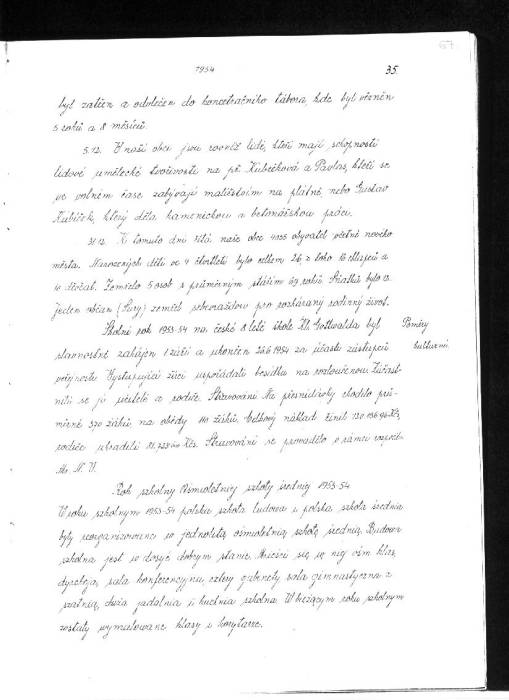 57
1954
35.
byl zatčen a odvlečen do koncetračního tábora, kde byl vězněn
5 roků a 8 měsíců.
5.12. V naší obci jsou rovněž lidé, kteří mají schopnosti
lidové umělecké tvořivosti na př. Kubečková a Pavlas, kteří se
ve volném čase zabývají malířstvím na plátně, nebo Gustav
Kubíček, který dělá kamenickou a betonářskou práci.
31.12. K tomuto dni čítá naše obec 4025 obyvatel včetně nového
města. Narozených dětí ve 4 čtvrtletí bylo celkem 26, z toho 16 chlapců a
10 děvčat. Zemřelo 5 osob s průměrným stářím 69 roků. Sňatků bylo 12.
Jeden občan (Sury) zemřel sebevraždou pro rozháraný rodinný život.
Školní rok 1953-54 na české 8 leté škole Kl. Gottwalda byl
Poměry
slavnostně zahájen 1 září a ukončen 26.6 1954 za účasti zástupců
kulturní.
veřejnosti. Vystupující žáci uspořádali besídku na rozloučenou. Zúčast-
nili se jí přátelé a rodiče. Stravování: Na přesnídávky chodilo prů-
měrně 370 žáků, na obědy 110 žáků. Celkový náklad činil
rodiče uhradili Kčs. Stravování se provádělo v rámci rozpoč-
M. N. V.
Rok szkolny Ośmioletniej szkoły średniej 1953-54
W roku szkolnym 1953-54 polska szkoła ludowa i polska szkoła średnia
były reorganizowane w jednolitą ośmioletnią szkołę średnią. Budowa
szkolna jest w dosyć dobrym stanie. Mieści się w niej ośm klas,
dyrekcja, sala konferencyjna, cztery gabinety sala gimnastyczna z
szatnią, dwia jadalnia i kuchnia szkolna. W bieżącym roku szkolnym
zostały wymalowane klasy i korytarze.